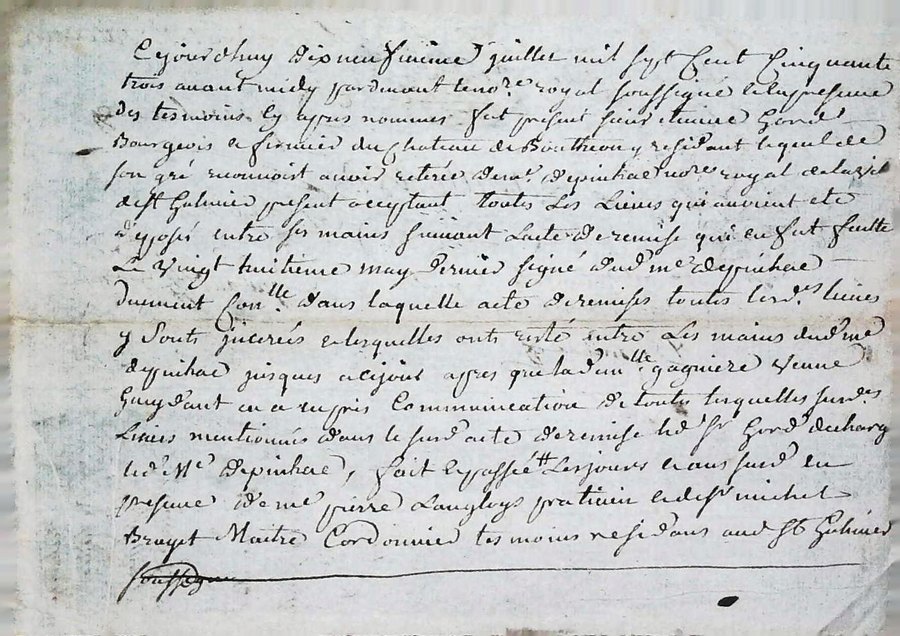 Cejourdhuy dixneufvieme juillet mil sept Cent Cinquante
trois avant midy pardevant le nore royal soussigné et la presence
des tesmoins cy apres nommés fut présent sieur etienne Gord
Bourgeois et fermier du Chateau de Bouthéon y residant lequel de
son gré reconnoit avoir retiré de me depinhac nore royal de la ville
de st Galmier present acceptant toutes Les Lieves qui avoient eté
deposés entre ses mains suivant Lacte de remise qui en fut faitte
Le vingt huitieme may dernier signé dud me depinhac
duement Conllé dans laquelle acte de remises toutes lesds lieves
y sonts incerés et lesquelles onts resté entre Les mains dud me
depinhac jusques a cejour apres que lad dlle gagniere veuve
en a repris Communication de toutes lesquelles surds
Lieves mentionnés dans le surd acte de remise led sr Gord decharge
led Me depinhac, fait et passé Les jours et ans surd en
presence de me pierre Langloys praticien et de sr michel
Bruyet Maitre Cordonnier tesmoins residans aud st Galmier